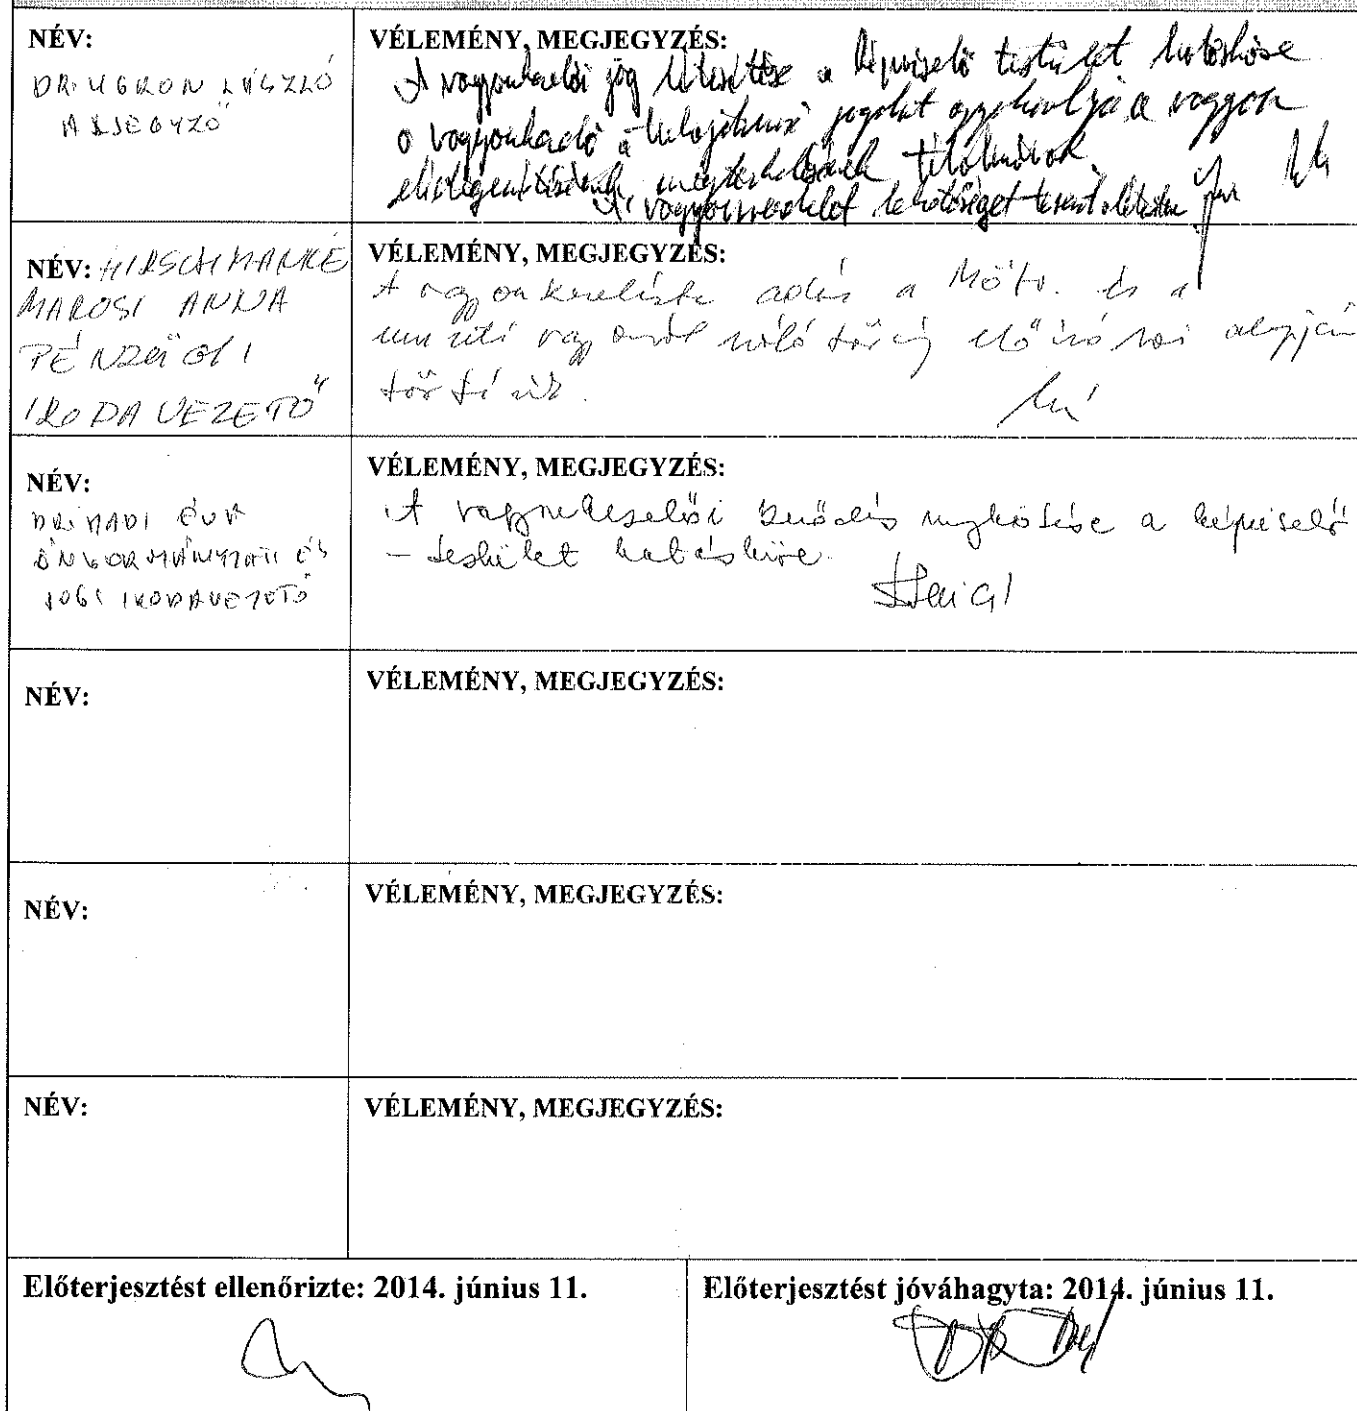 NÉV:
DR. UGRON LÁSZLÓ
ALJEGYZŐ
VÉLEMÉNY, MEGJEGYZÉS:
A vagyonkezelői jog létesítése a képviselő testület hatásköre
a vagyonkezelő a tulajdonosi jogokat gyakorolja a vagyon
elidegenítésének, megterhelésének
A lehetőséget teremt
NÉV: HIRSCHMANNÉ
MAROSI ANNA
PÉNZÜGYI
IRODAVEZETŐ
VÉLEMÉNY, MEGJEGYZÉS:
A vagyonkezelésbe adás a Mötv. és a
nemzeti vagyonról szóló törvény előírásai alapján
történik.
NÉV:
DR. MADI ÉVA
ÖNKORMÁNYZATI ÉS
JOGI IRODAVEZETŐ
VÉLEMÉNY, MEGJEGYZÉS:
A vagyonkezelői szerződés megkötése a képviselő
- testület hatásköre.
NÉV:
VÉLEMÉNY, MEGJEGYZÉS:
NÉV:
VÉLEMÉNY, MEGJEGYZÉS:
NÉV:
VÉLEMÉNY, MEGJEGYZÉS:
Előterjesztést ellenőrizte: 2014. június 11.
Előterjesztést jóváhagyta: 2014. június 11.